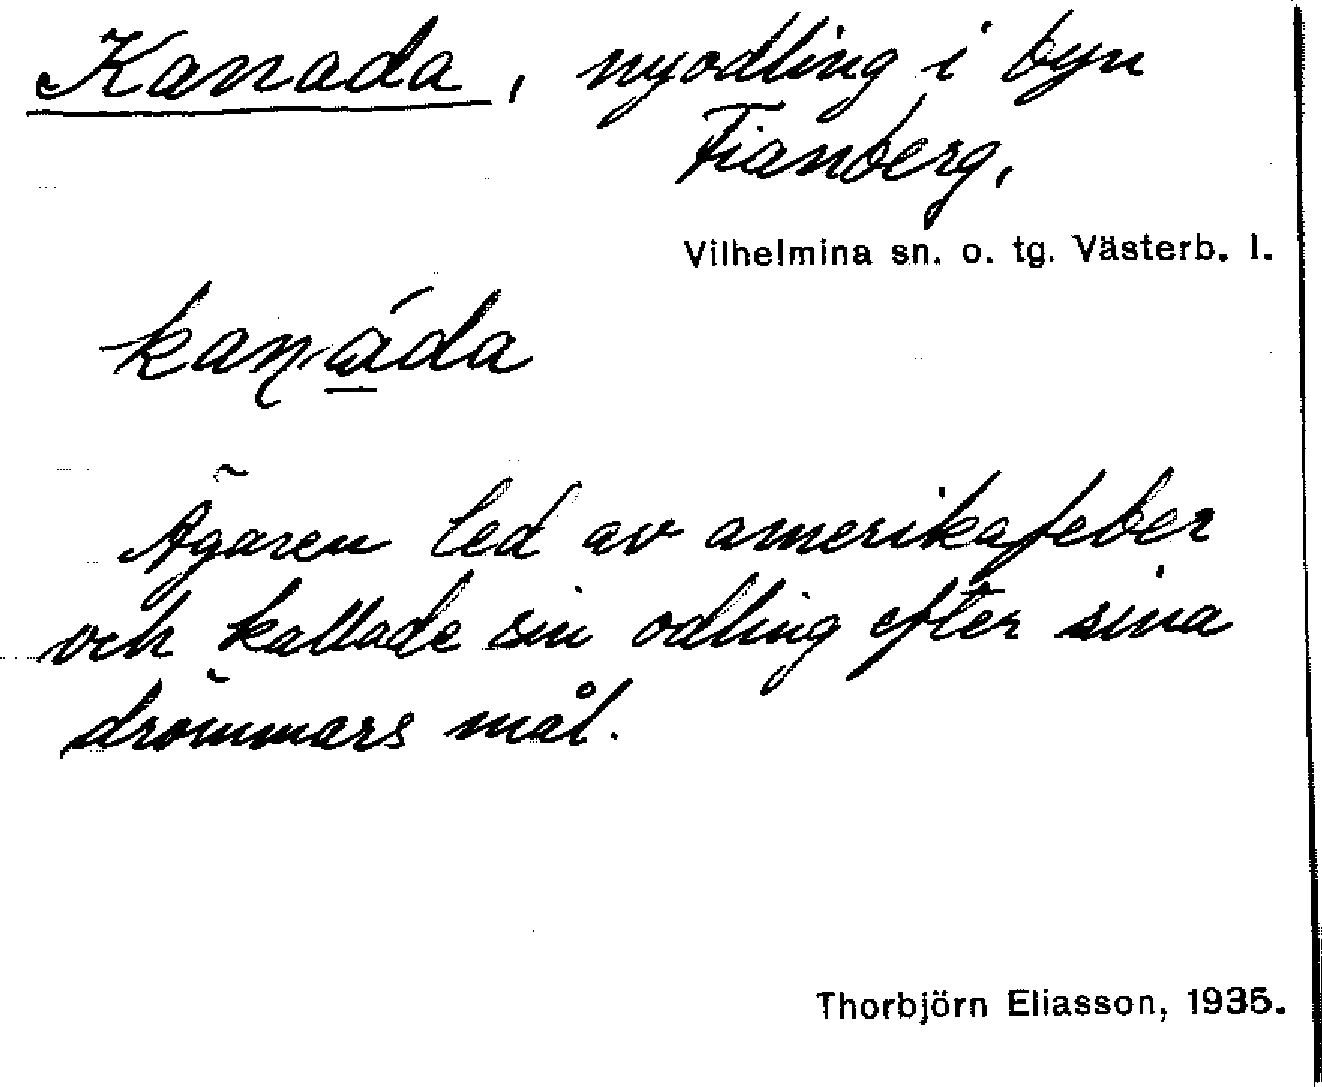 Kanada, nyodling i byn
Fianberg,
Vilhelmina sn. o. tg. Västerb. l.
kanáda
Ägaren led av amerikafeber
och kallade sin odling efter sina
drömmars mål.
Thorbjörn Eliasson, 1935.